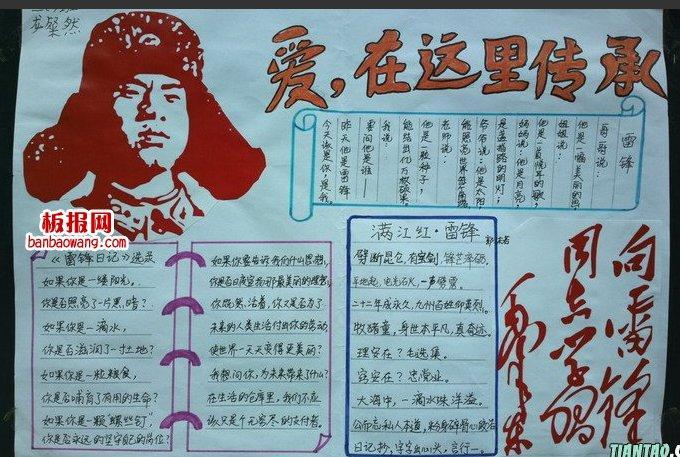 爱，在这里传承
雷锋
哥哥说：
他是一幅美丽的画，
姐姐说：
他是一首悦耳的歌，
妈妈说：他是月亮，
路的明灯；
爷爷说：他是太阳，
能照亮世界
老师说：
他是一粒种子，
能结出亿万颗硕果。
我说：
要问他是谁——
昨天他是雷锋
今天该是你，是我。
板报网
banbaowang.com
《雷锋日记》选录
如果你是一缕阳光，
你是否照亮了一片黑暗？
如果你是一滴水，
你是否滋润了一寸土地？
如果你是一粒粮食，
你是否哺育了有用的生命？
如果你是一颗“螺丝钉”，
你是否永远的坚守你的岗位？
如果你要告诉我们什么思想，
你是否日夜宣扬那最美丽的理想？
你既然活着，你又是否为了
未来的人类生活付出你的劳动，
使世界一天天变得更美丽？
我想问你，为未来带来了什么？
在生活的仓库里，我们不应
该只是个无穷尽的支付者。
满江红·雷锋
郭沫若
劈断昆仑，有宝剑，锋芒淬砺。
平地起，电光石火，一声霹雳。
二十二年成永久，九州百姓仰英烈。
牧猪童，身世本平凡，真奇迹。
理安在？毛选集。
实安在？忠党业。
大海中，一滴水珠洋溢。
日记抄，字字出心头，言行一。
向雷锋
同志学习
毛泽东
TIANTAO.C